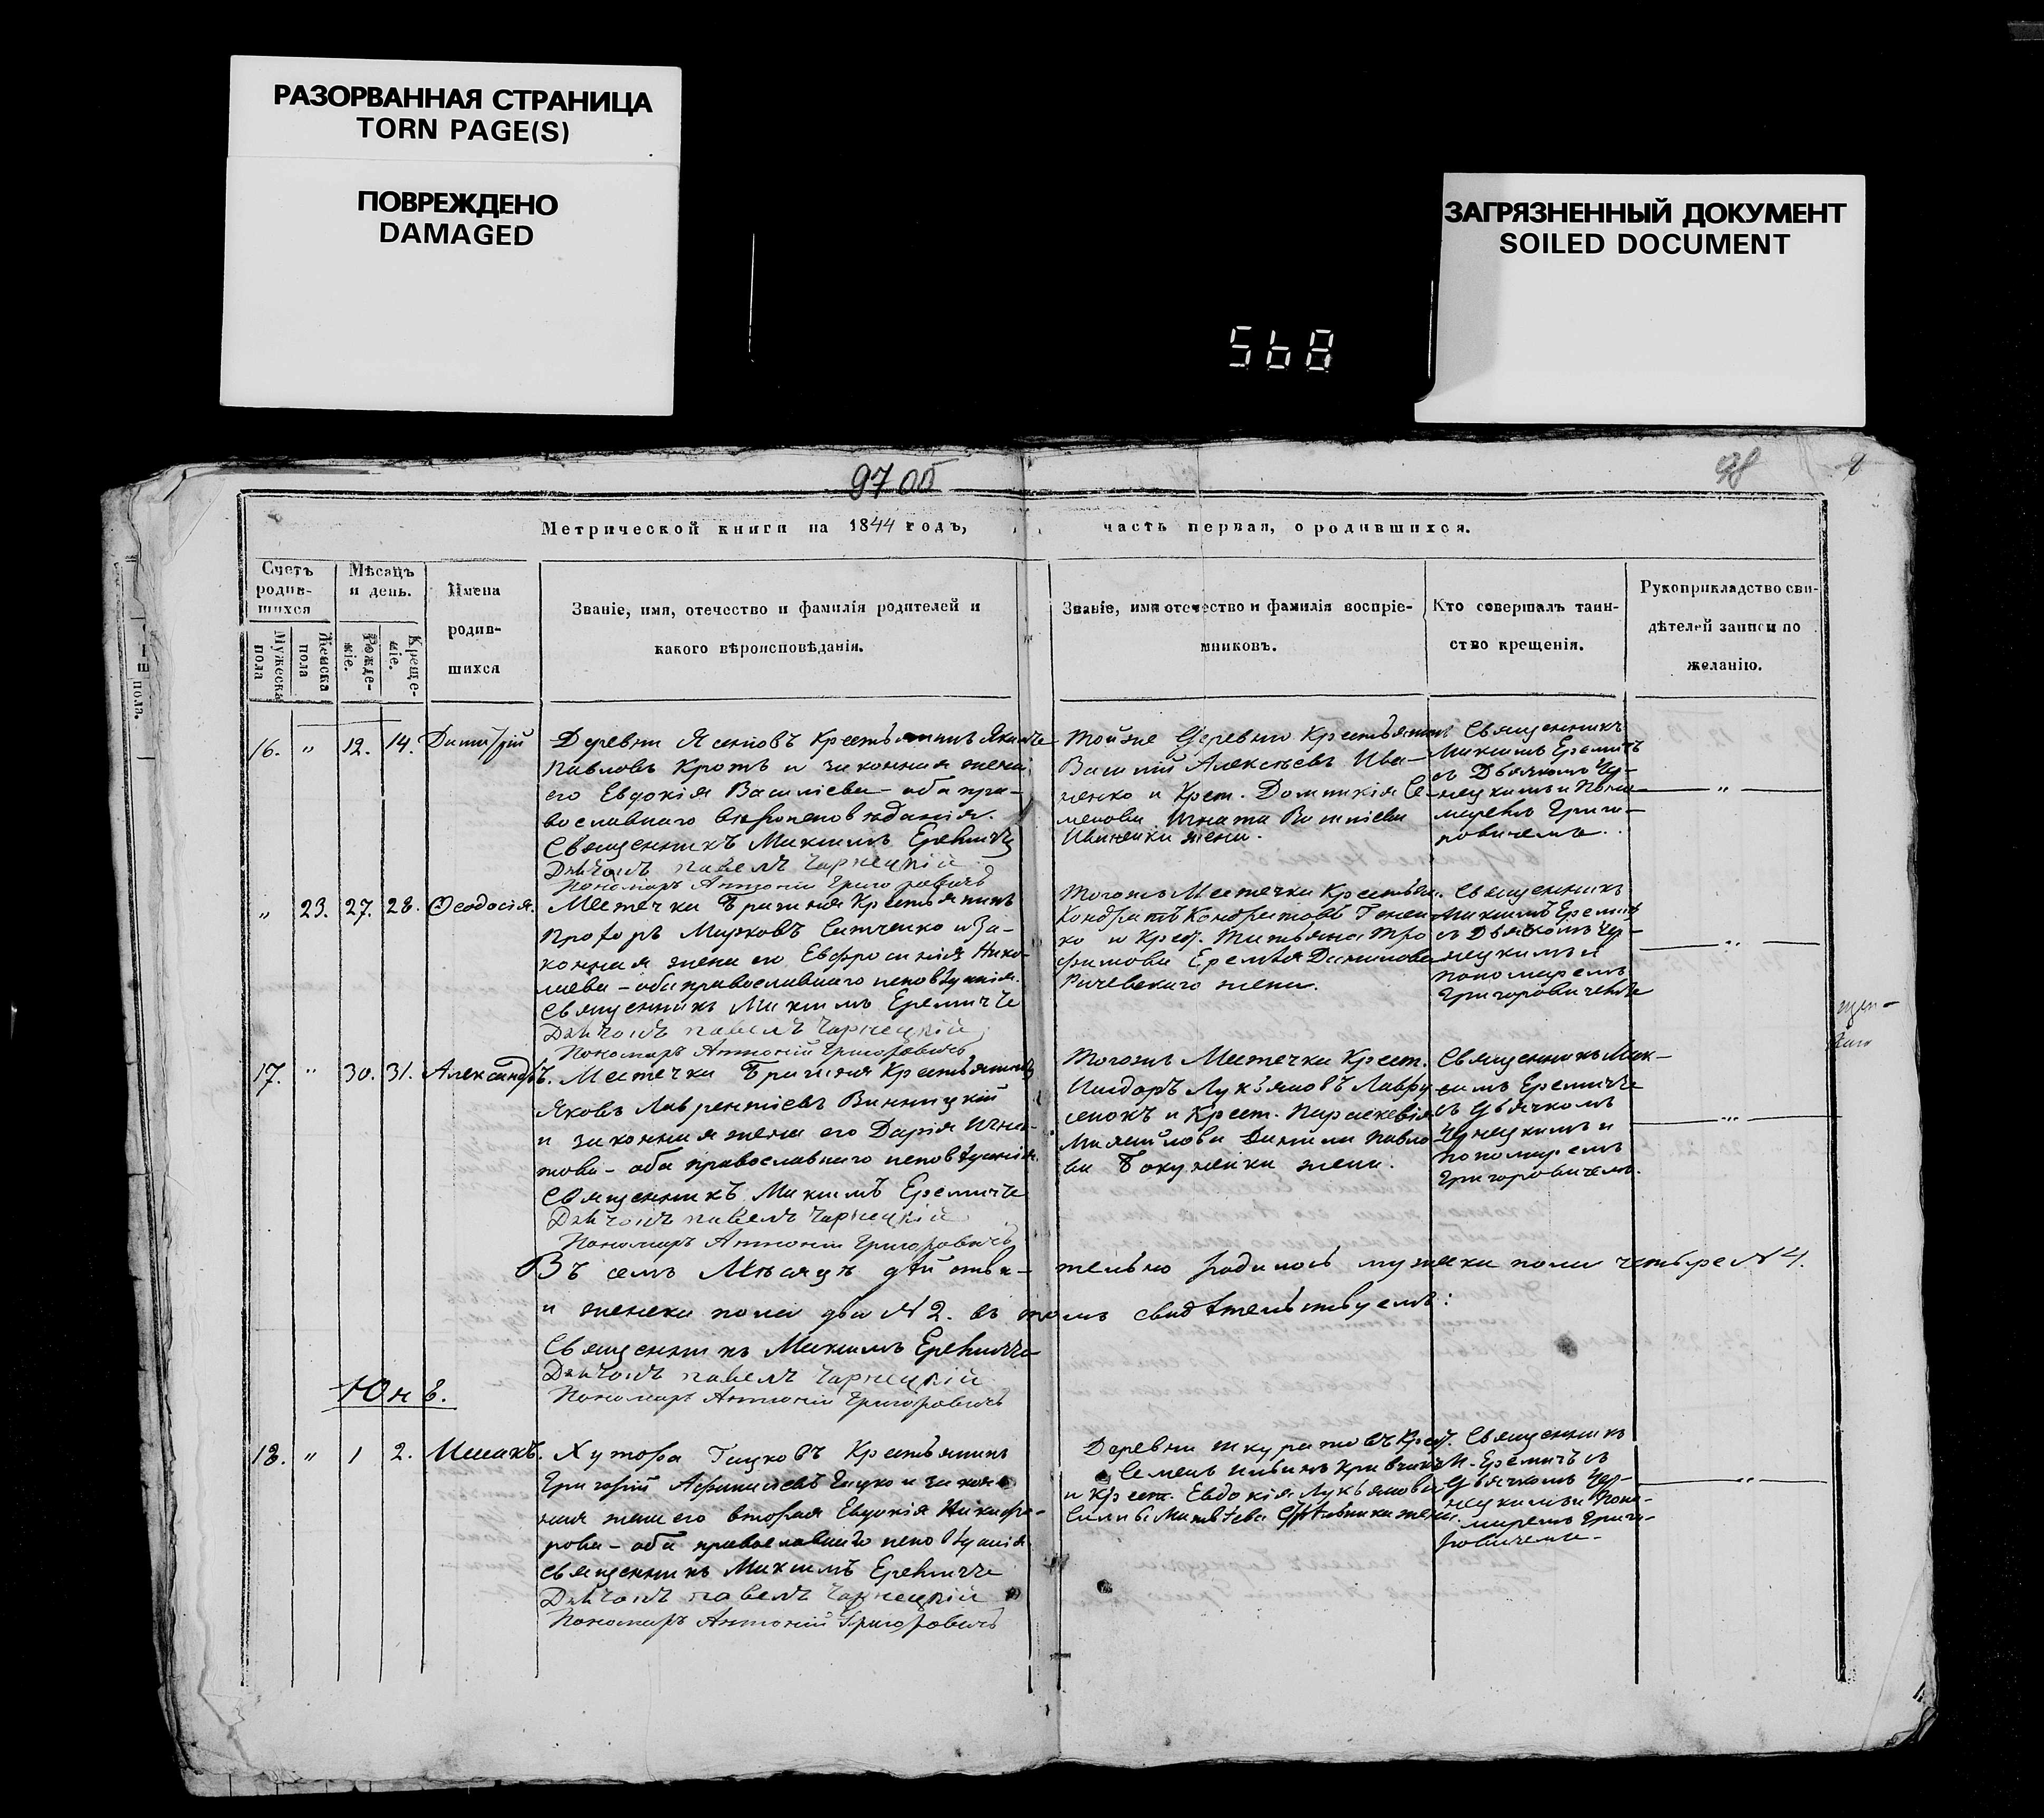 РАЗОРВАННАЯ СТРАНИЦА
TORN PAGE(S)
ПОВРЕЖДЕНО
DAMAGED
ЗАГРЯЗНЕННЫЙ ДОКУМЕНТ
SOILED DOCUMENT
568
97 об
98
Метрической книги на 1844 годъ,
часть первая, о родившихся.
Счетъ родив-шихся
Мужеска пола
Женска пола
Мѣсяцъ и день.
Рожде-ніе.
Креще-ніе.
Имена
родив-
шихся
Званіе, имя, отечество и фамилія родителей и
какого вѣроисповѣданія.
Званіе, имя отечество и фамилія воспріе-
мниковъ.
Кто совершалъ таин-
ство крещенія.
Рукоприкладство сви-
дѣтелей записи по
желанію.
16. " 12. 14. Димитрій
Деревни Ясеновъ Крестьянинъ
Павловъ Кротъ и законная жена
его Евдокія Василіева - оба пра-
вославнаго вѣроисповѣданія.
Священникъ Максимъ Еремичъ
Дьячокъ павелъ Чарнецкій
Пономарь Антоній Григоровичъ
Тойже Деревни Крестьянинъ
Василій Алексѣевъ Ива-
ненко и Крест. Доминикія Се-
менова Игната Василіева
Иваненка жена.
Священникъ
Максимъ Еремичъ
съ Дьячкомъ Чер-
нецкимъ и Поно-
маремъ Григо-
ровичемъ.
" 23. 27. 28. Ѳеодосія.
Местечка Брагиня Крестьянинъ
Прохоръ Марковъ Ситченко и За-
конная жена его Евфросинія Нико-
лаева - оба православнаго исповѣданія.
Священникъ Максимъ Еремичъ
Дьячокъ павелъ Чарнецкій
Пономарь Антоній Григоровичъ
Тогожъ Местечка Крестьян.
Кондратъ Кондратовъ
ко и Крест. Татьяна Тро-
фимова Еремѣя Данилова
жена.
Священникъ
Максимъ Еремичъ
съ Дьячкомъ Чер-
нецкимъ и
пономаремъ
Григоровичемъ
17. " 30. 31. Александръ.
Местечка Брагиня Крестьянинъ
Яковъ Лаврентіевъ Винницкій
и законная жена его Дарія Игна-
това - оба православнаго исповѣданія.
Священникъ Максимъ Еремичъ
Дьячокъ павелъ Чарнецкій
Пономарь Антоній Григоровичъ
Тогожъ Местечка Крест.
Исидоръ Лукьяновъ Лавру-
сенокъ и Крест. Параскевія
Данила Павло-
ва жена.
Священникъ Мак-
симъ Еремичъ
съ Дьячкомъ
Чернецкимъ и
пономаремъ
Григоровичемъ.
Въ семъ Мѣсяцѣ дѣйстви-тельно родилось мужеска пола четыре N 4.
и женска пола два N 2. въ томъ свидѣтельствуемъ:
Священникъ Максимъ Еремичъ
Дьячокъ павелъ Чарнецкій
Пономарь Антоній Григоровичъ
Юнь.
18. " 1 2. Исаакъ.
Хутора Гацковъ Крестьянинъ
Григорій Афанасіевъ Гацко и закон-
ная жена его вторая Евдокія Никифо-
рова - оба православнаго исповѣданія
Священникъ Максимъ Еремичъ
Дьячокъ павелъ Чарнецкій
Пономарь Антоній Григоровичъ
Деревни Крест.
Семенъ
и Крест. Евдокія Лукьянова
Матвѣева жена.
Священникъ
М. Еремичъ съ
Дьячкомъ Чер-
нецкимъ и Поно-
маремъ Григо-
ровичемъ.